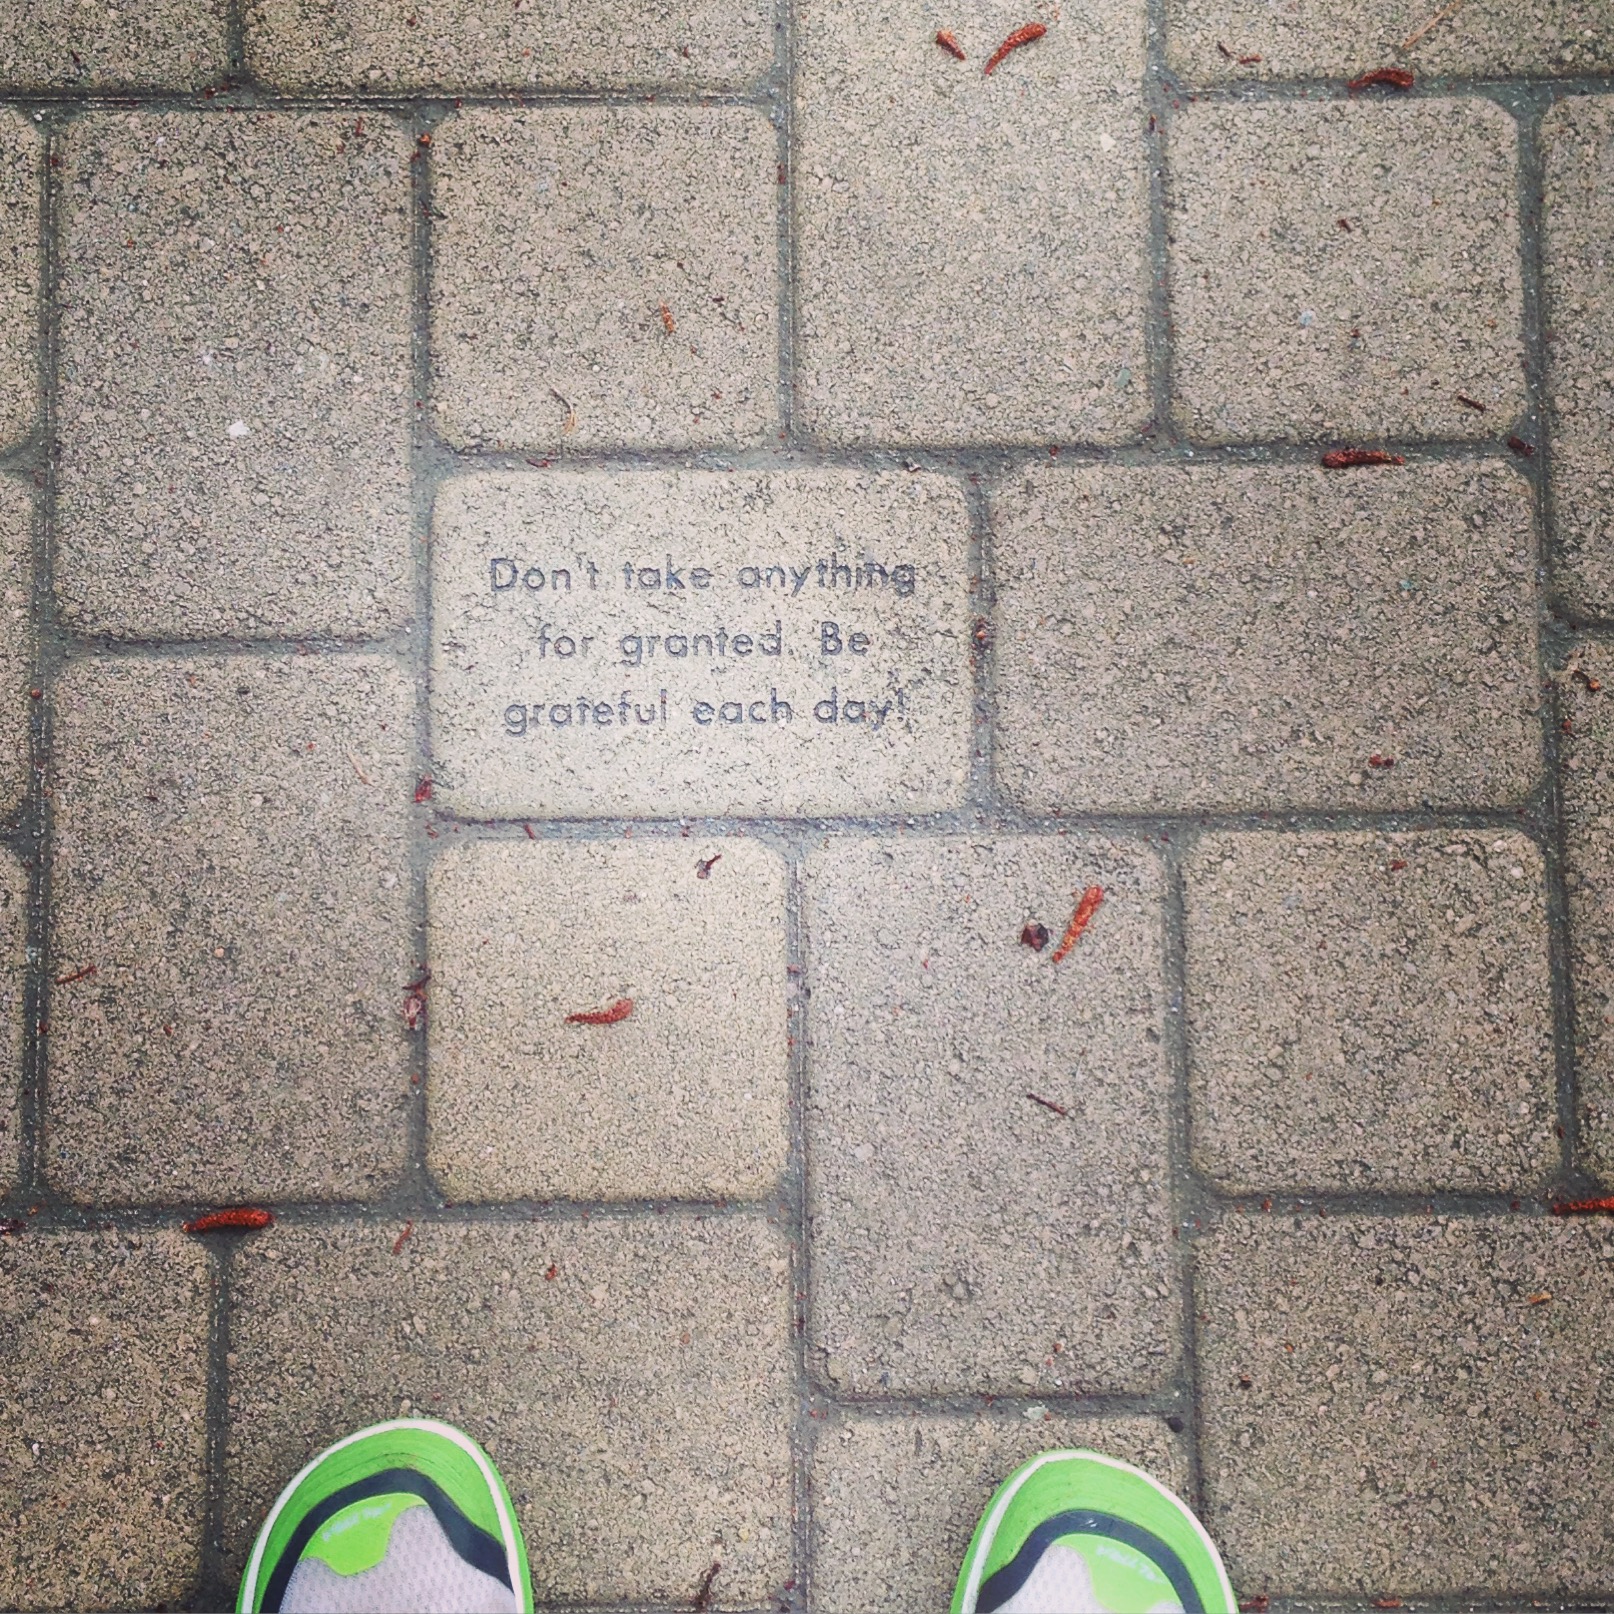 Don't take anything
for granted. Be
grateful each day!